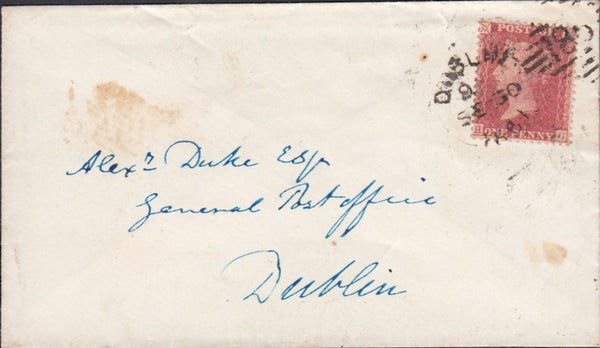 POSTAGE
ONE PENNY
SE 30
Alexr Duke Esqr
General Post office
Dublin